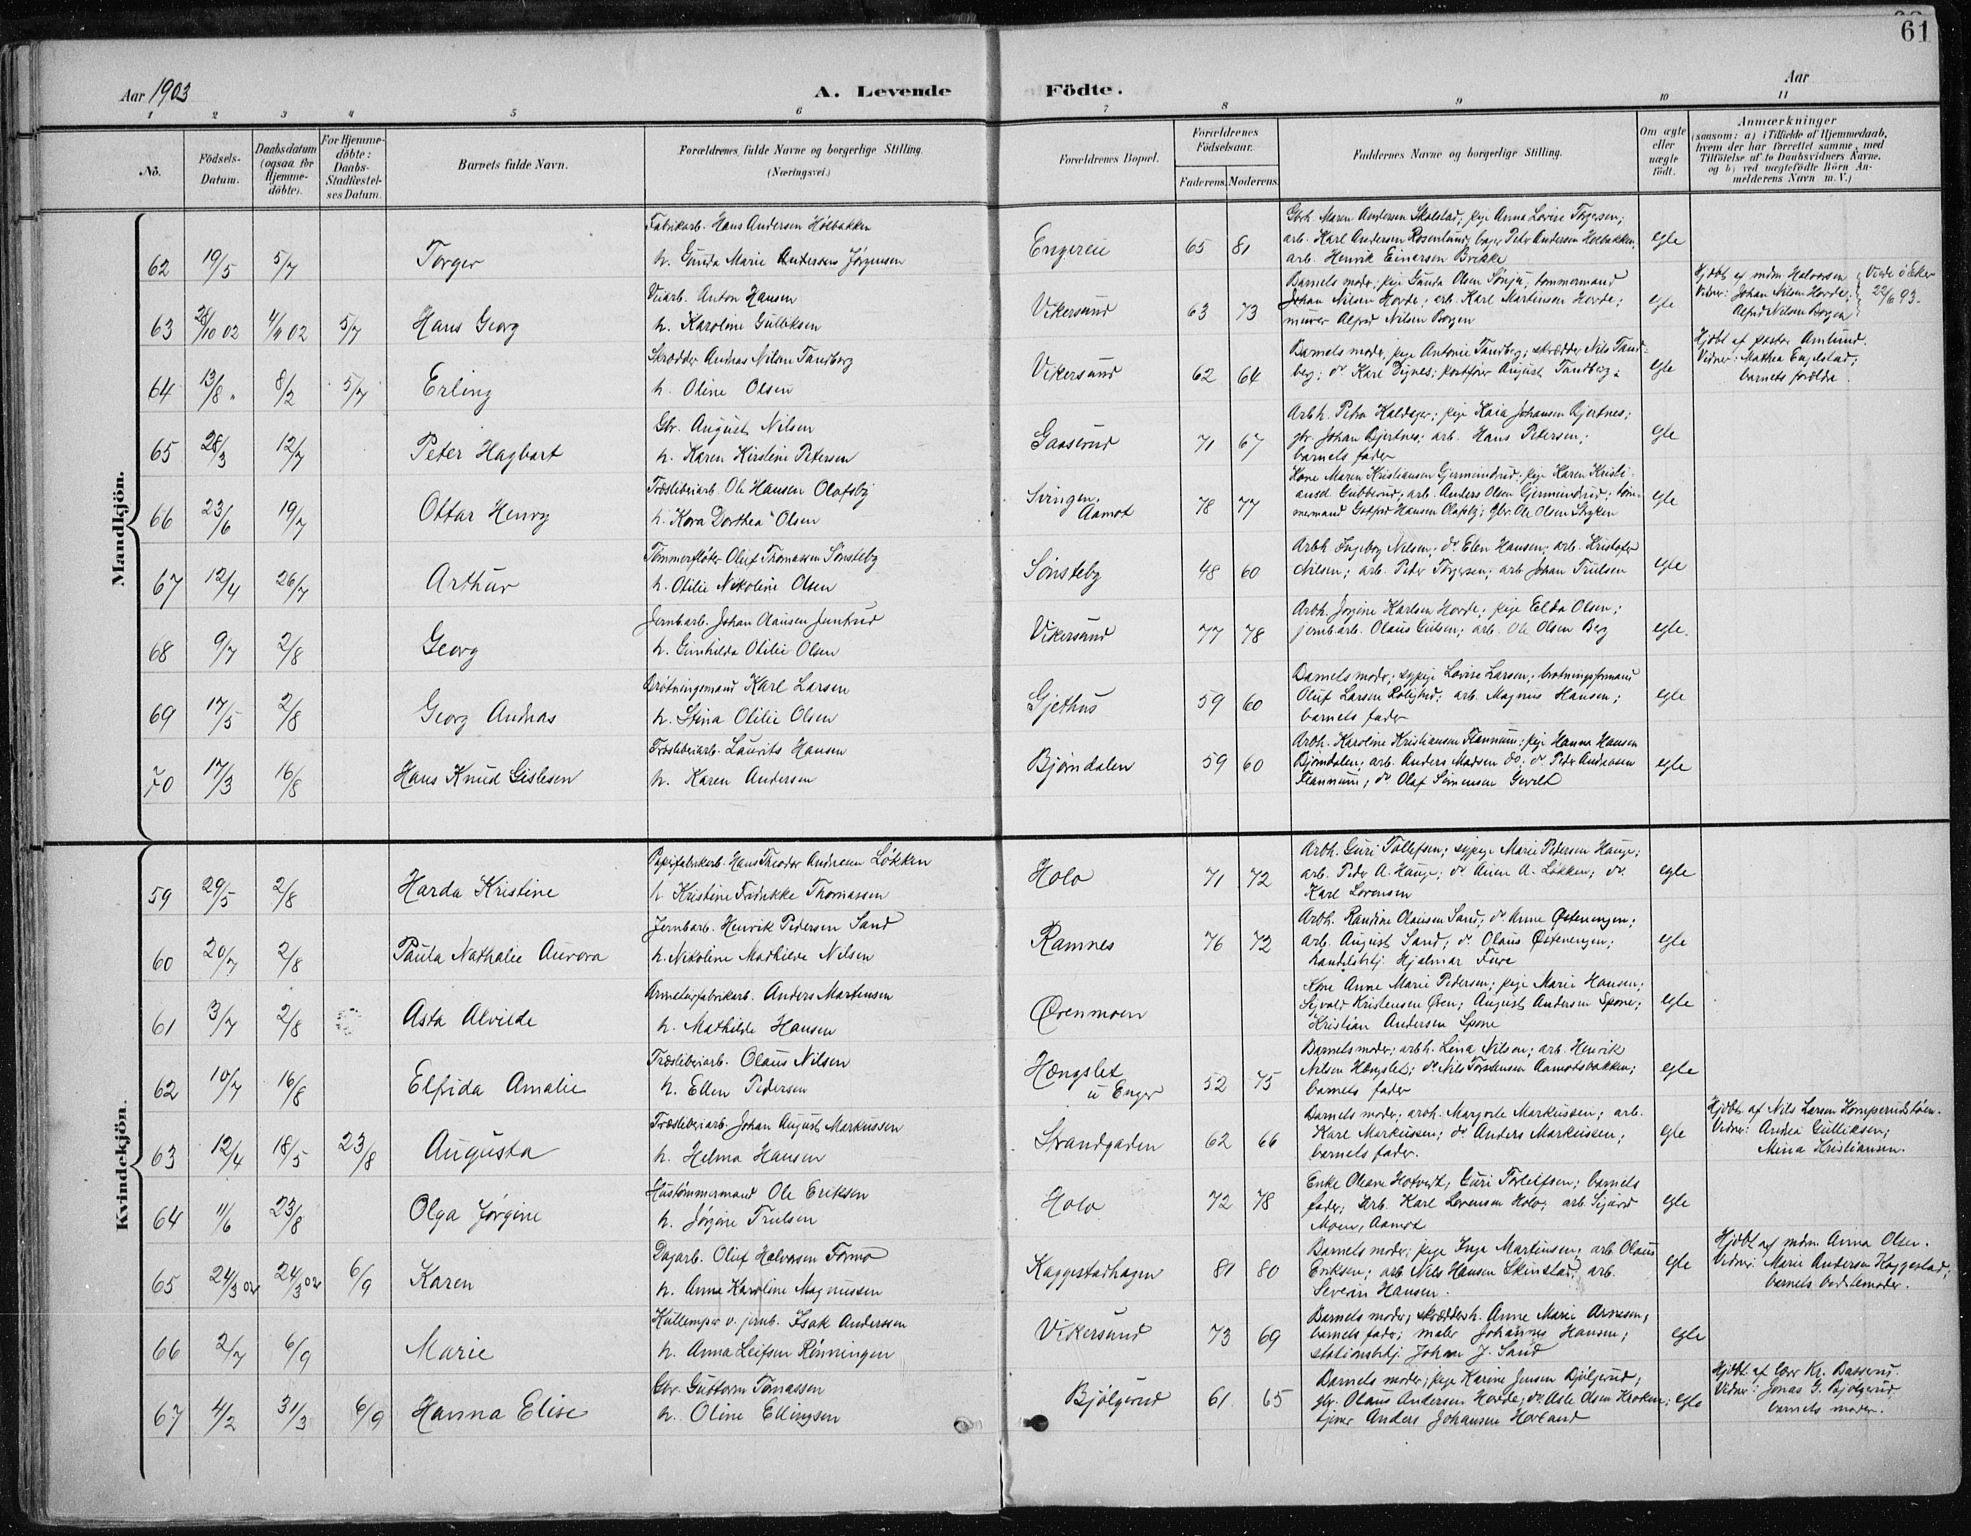 61
Aar 1903
A. Levende Födte.
Aar
1 2 3 4 5 6 7 8 9 10 11
No.
Födsels-Datum.
Daabsdatum (ogsaa for Hjemmedöbte).
For Hjemmedöbte: Daabs-Stadfæstelses Datum.
Barnets fulde Navn.
Forældrenes fulde Navne og borgerlige Stilling. (Næringsvei.)
Forældrenes Bopæl.
Forældrenes Födselsaar.
Faderens. Moderens.
Faddernes Navne og borgerlige Stilling.
Om ægte eller uægte födt.
Anmærkninger (saasom: a) i Tilfælde af Hjemmedaab, hvem der har forrettet samme, med Tilföielse af to Daabsvidners Navne, og b) ved uægtefödte Börn Anmelderens Navn m. V.)
Mandkjön.
62 19/5 5/7 Torger
Fabrikarb. Hans Andersen Holbakken
h. Gunda Marie Andersen Jørgensen
Engereie 65 81
Gbrh. Maren Andersen Skalstad; pige Anna Lovise Torgersen;
arb. Karl Andersen Rosenlund; bager Petr Andersen Holbakken;
arb. Henrik Einersen Brekke
egte
63 28/10 02 4/11 02 5/7 Hans Georg
Veiarb. Anton Hansen
h. Karoline Gulbiksen
Vikersund 63 73
Barnets moder; pige Gunda Olsen Sønju; tømmermand
Johan Nilsen Hovde; arb. Karl Martinsen Hovde;
murer Alfred Nilsen Borgen
egte
Hjdbt af mdm Halvorsen
Vidner: Johan Nilsen Hovde;
Alfred Nilsen Borgen
Viede i Eker
22/6 93.
64 13/8 " 8/2 5/7 Erling
Skrædder Andreas Nilsen Tandberg
h. Oline Olsen
Vikersund 62 64
Barnets moder, pige Antonie Tandberg; skrædder Nils Tand-
berg; do Karl Dignes; postfører August Tandberg.
egte
Hjdbt af pastor Amlund.
Vidner: Mathea Engelstad;
barnets forældre.
65 28/3 12/7 Peter Hagbart
Gbr. August Nilsen
h. Karen Kirstine Petersen
Gaaserud 71 67
Arbh. Petra Kaldager; pige Kaia Johansen Bjertnes;
gbr. Johan Bjertnes; arb. Hans Petersen;
barnets fader
egte
66 23/6 19/7 Ottar Henry
Træsliberiarb. Ole Hansen Olafsby
h. Kora Dorthea Olsen
Svingen, Aamot 78 77
Kone Maren Kristiansen Gjermundrud; pige Karen Kristi-
ansd Gubberud; arb. Anders Olsen Gjermundrud; tøm-
mermand Gotfred Hansen Olafsby; gbr. Ole Olsen Stryken
egte
67 12/4 26/7 Arthur
Tømmerfløter Oluf Thomassen Sønsteby
h. Otilie Nikoline Olsen
Sønsteby 48 60
Arbh Ingeborg Nilsen; do Elen Hansen; arb. Kristofer
Nilsen; arb. Peder Torgersen; arb Johan Trulsen
egte
68 9/7 2/8 Georg
Jernb.arb. Johan Olausen Juntrud
h. Gunhilda Otilie Olsen
Vikersund 77 78
Arbh. Jørgine Karlsen Hovde; pige Elda Olsen;
jernb.arb. Olaus Eulsen; arb. Ole Olsen Berg
egte.
69 17/5 2/8 Georg Andreas
Brøtningsmand Karl Larsen
h. Stina Otilie Olsen
Gjethus 59 60
Barnets moder; sypige Lovise Larsen; brøtningsformand
Oluf Larsen Rolighed; arb. Magnus Hansen;
barnets fader
egte
70 17/3 16/8 Hans Knud Gislesen
Træsliberiarb. Laurits Hansen
h. Karen Andersen
Bjørndalen 59 60
Arbh. Karoline Kristiansen Flannum; pige Hanna Hansen
Bjørndalen; arb. Anders Madsen do; do Peder Andersen
Flannum; do Olaf Simensen Gevelt
egte
Kvindekjön.
59 29/5 2/8 Harda Kristine
Papirfabrikarb. Hans Theodor Andersen Løkken
h. Kristine Fredrikke Thomassen
Holo 71 72
Arbh. Guri Tollefsen; sypige Marie Petersen Hauge;
arb. Peder A. Hauge; do Anen A. Løkken; do
Karl Lorensen
egte
60 20/7 2/8 Paula Nathalie Aurora
Jernb.arb. Henrik Pedersen Sand
h. Nikoline Mathilde Nilsen
Ramnes 76 72
Arbh. Randine Olausen Sand; do Anne Østenengen;
arb. August Sand; do Olaus Østenengen;
handelsbtj Hjalmar Fure
egte
61 3/7 2/8 Asta Alvilde
Armaturfabrikarb. Anders Martinsen
h. Mathilde Hansen
Ørenmoen
Kone Anne Marie Pedersen; pige Marie Hansen;
Sigvald Kristensen Øren; August Andersen Spone;
Kristian Andersen Spone
egte
62 10/7 16/8 Elfrida Amalie
Træsliberiarb. Olaus Nilsen
h. Ellen Pedersen
Hængslet u Enger 52 75
Barnets moder; arbh. Lina Nilsen; arb. Henrik
Nilsen Hængslet; do Nils Torstensen Aamotsbakken;
barnets fader
egte
63 12/4 18/5 23/8 Augusta
Træsliberiarb. Johan August Markussen
h. Helma Hansen
Strandgaden 62 66
Barnets moder; arbh. Margrete Markussen; arb.
Karl Markussen; do Anders Markussen;
barnets fader.
egte
Hjdbt. af Nils Larsen Komperudstøen.
Vidner: Andrea Gulliksen;
Mina Kristiansen.
64 11/6 23/8 Olga Jørgine
Hustømmermand Ole Eriksen
h. Jørgine Trulsen
Holo 72 78
Enke Oleane Hotvert; Guri Torlefsen; barnets
fader; arb. Karl Lorensen Holo; arb Sigurd
Moen, Aamot
egte
65 24/3 02 24/3 02 6/9 Karen
Dagarb. Oluf Halvorsen Formo
h. Anna Karoline Magnussen
Kaggestadhagen 81 80
Barnets moder; pige Inga Martinsen; arb Olaus
Eriksen; arb Nils Hansen Skinstad; arb.
Severin Hansen.
egte
Hjdbt af mdm Anna Olsen.
Vidner: Marie Andersen Kaggestad;
barnets bedstemoder.
66 2/7 6/9 Marie
Kullemper v. jernb. Isak Andersen
h. Anna Leifsen Rønningen
Vikersund 73 69
Barnets moder; skrædderh. Anne Marie Arnesen;
barnets fader; maler Johannes Hansen;
stationsbtj. Johan J. Sand
egte
67 4/2 31/3 6/9 Hanna Elise
Gbr. Guttorm Tomassen
h. Oline Ellingsen
Bjølgerud 61 65
Barnets moder; pige Karine Jensen Bjølgerud;
gbr. Olaus Andersen Hovde; do Asle Olsen Kroken;
tjener Anders Johansen Hovland
egte
Hjdbt. af lær Kr. Basserud.
Vidner: Jonas G. Bjølgerud
barnets moder.